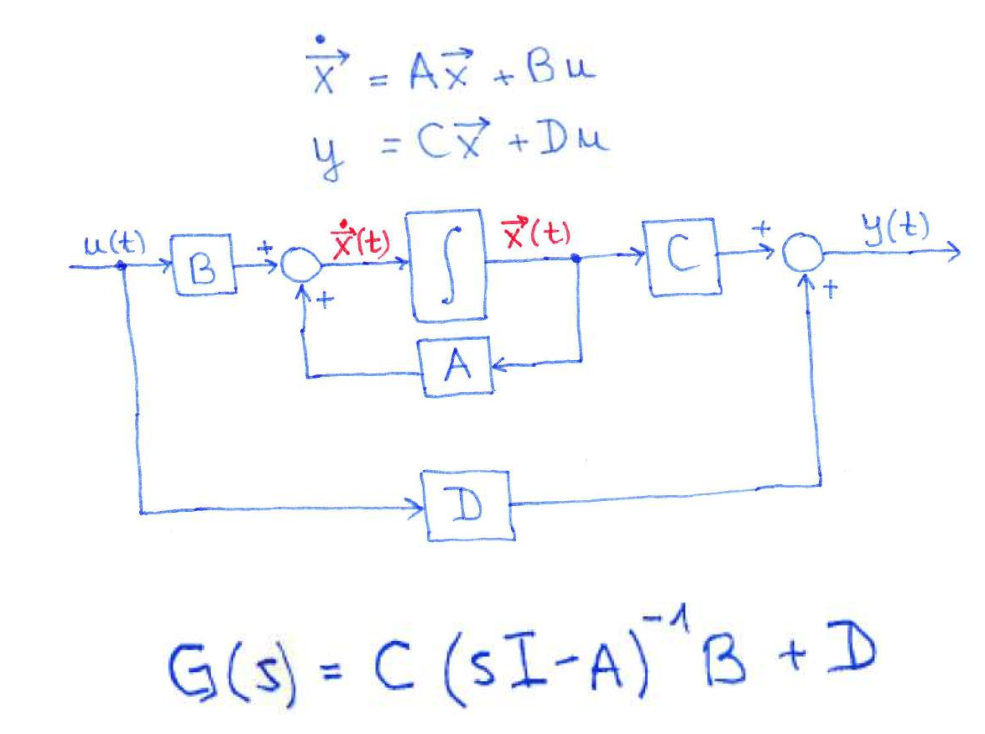 ẋ⃗ = Ax⃗ + Bu
y = Cx⃗ + Du
u(t) B + ẋ⃗(t) ∫ x⃗(t) C + y(t)
+ +
A
D
G(s) = C (sI-A)⁻¹ B + D